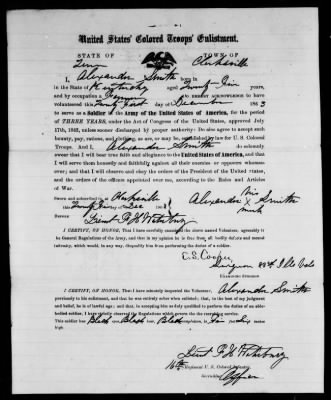 United States' Colored Troops' Enlistment.
STATE OF TOWN OF
Tenn Clarksville
I, Alexander Smith born in
in the State of Kentucky aged Twenty five years,
and by occupation a Farmer DO HEREBY ACKNOWLEDGE to have
volunteered this day of December 1863
to serve as a Soldier in the Army of the United States of America, for the period
of THREE YEARS, under the Act of Congress of the United States, approved July
17th, 1862, unless sooner discharged by proper authority: Do also agree to accept such
bounty, pay, rations, and clothing, as are, or may be, established by law for U. S. Colored
Troops. And I, Alexander Smith do solemnly
swear that I will bear true faith and allegiance to the United States of America, and that
I will serve them honestly and faithfully against all their enemies or opposers whomso-
ever; and that I will observe and obey the orders of the President of the United States,
and the orders of the officers appointed over me, according to the Rules and Articles
of War.
Sworn and subscribed to at Clarksville his
this day of Dec 1863 Alexander x Smith
BEFORE mark
Lieut
I CERTIFY, ON HONOR, That I have carefully examined the above named Volunteer, agreeably to
the General Regulations of the Army, and that in my opinion he is free from all bodily defects and mental
infirmity, which would, in any way, disqualify him from performing the duties of a soldier.
C. S. Cooper
Surgeon 83d Ills Vols
EXAMINING SURGEON
I CERTIFY, ON HONOR, That I have minutely inspected the Volunteer, Alexander Smith
previously to his enlistment, and that he was entirely sober when enlisted; that, to the best of my judgment
and belief, he is of lawful age; and that, in accepting him as duly qualified to perform the duties of an able-
bodied soldier, I have strictly observed the Regulations which govern the recruiting service.
This soldier has Black eyes, Black hair, Black complexion, is five feet inches
high.
Lieut
16th Regiment U. S. Colored Infantry,
Recruiting Officer